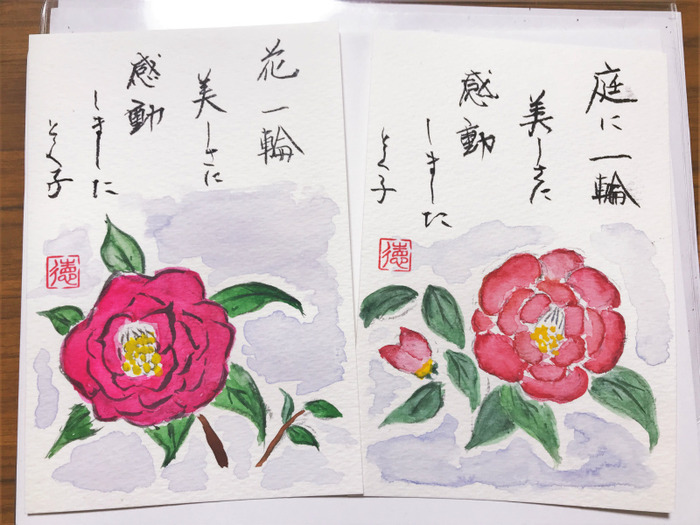 花一輪
美しさに
感動
しました
とく子
徳
庭に一輪
美しさに
感動
しました
とく子
徳